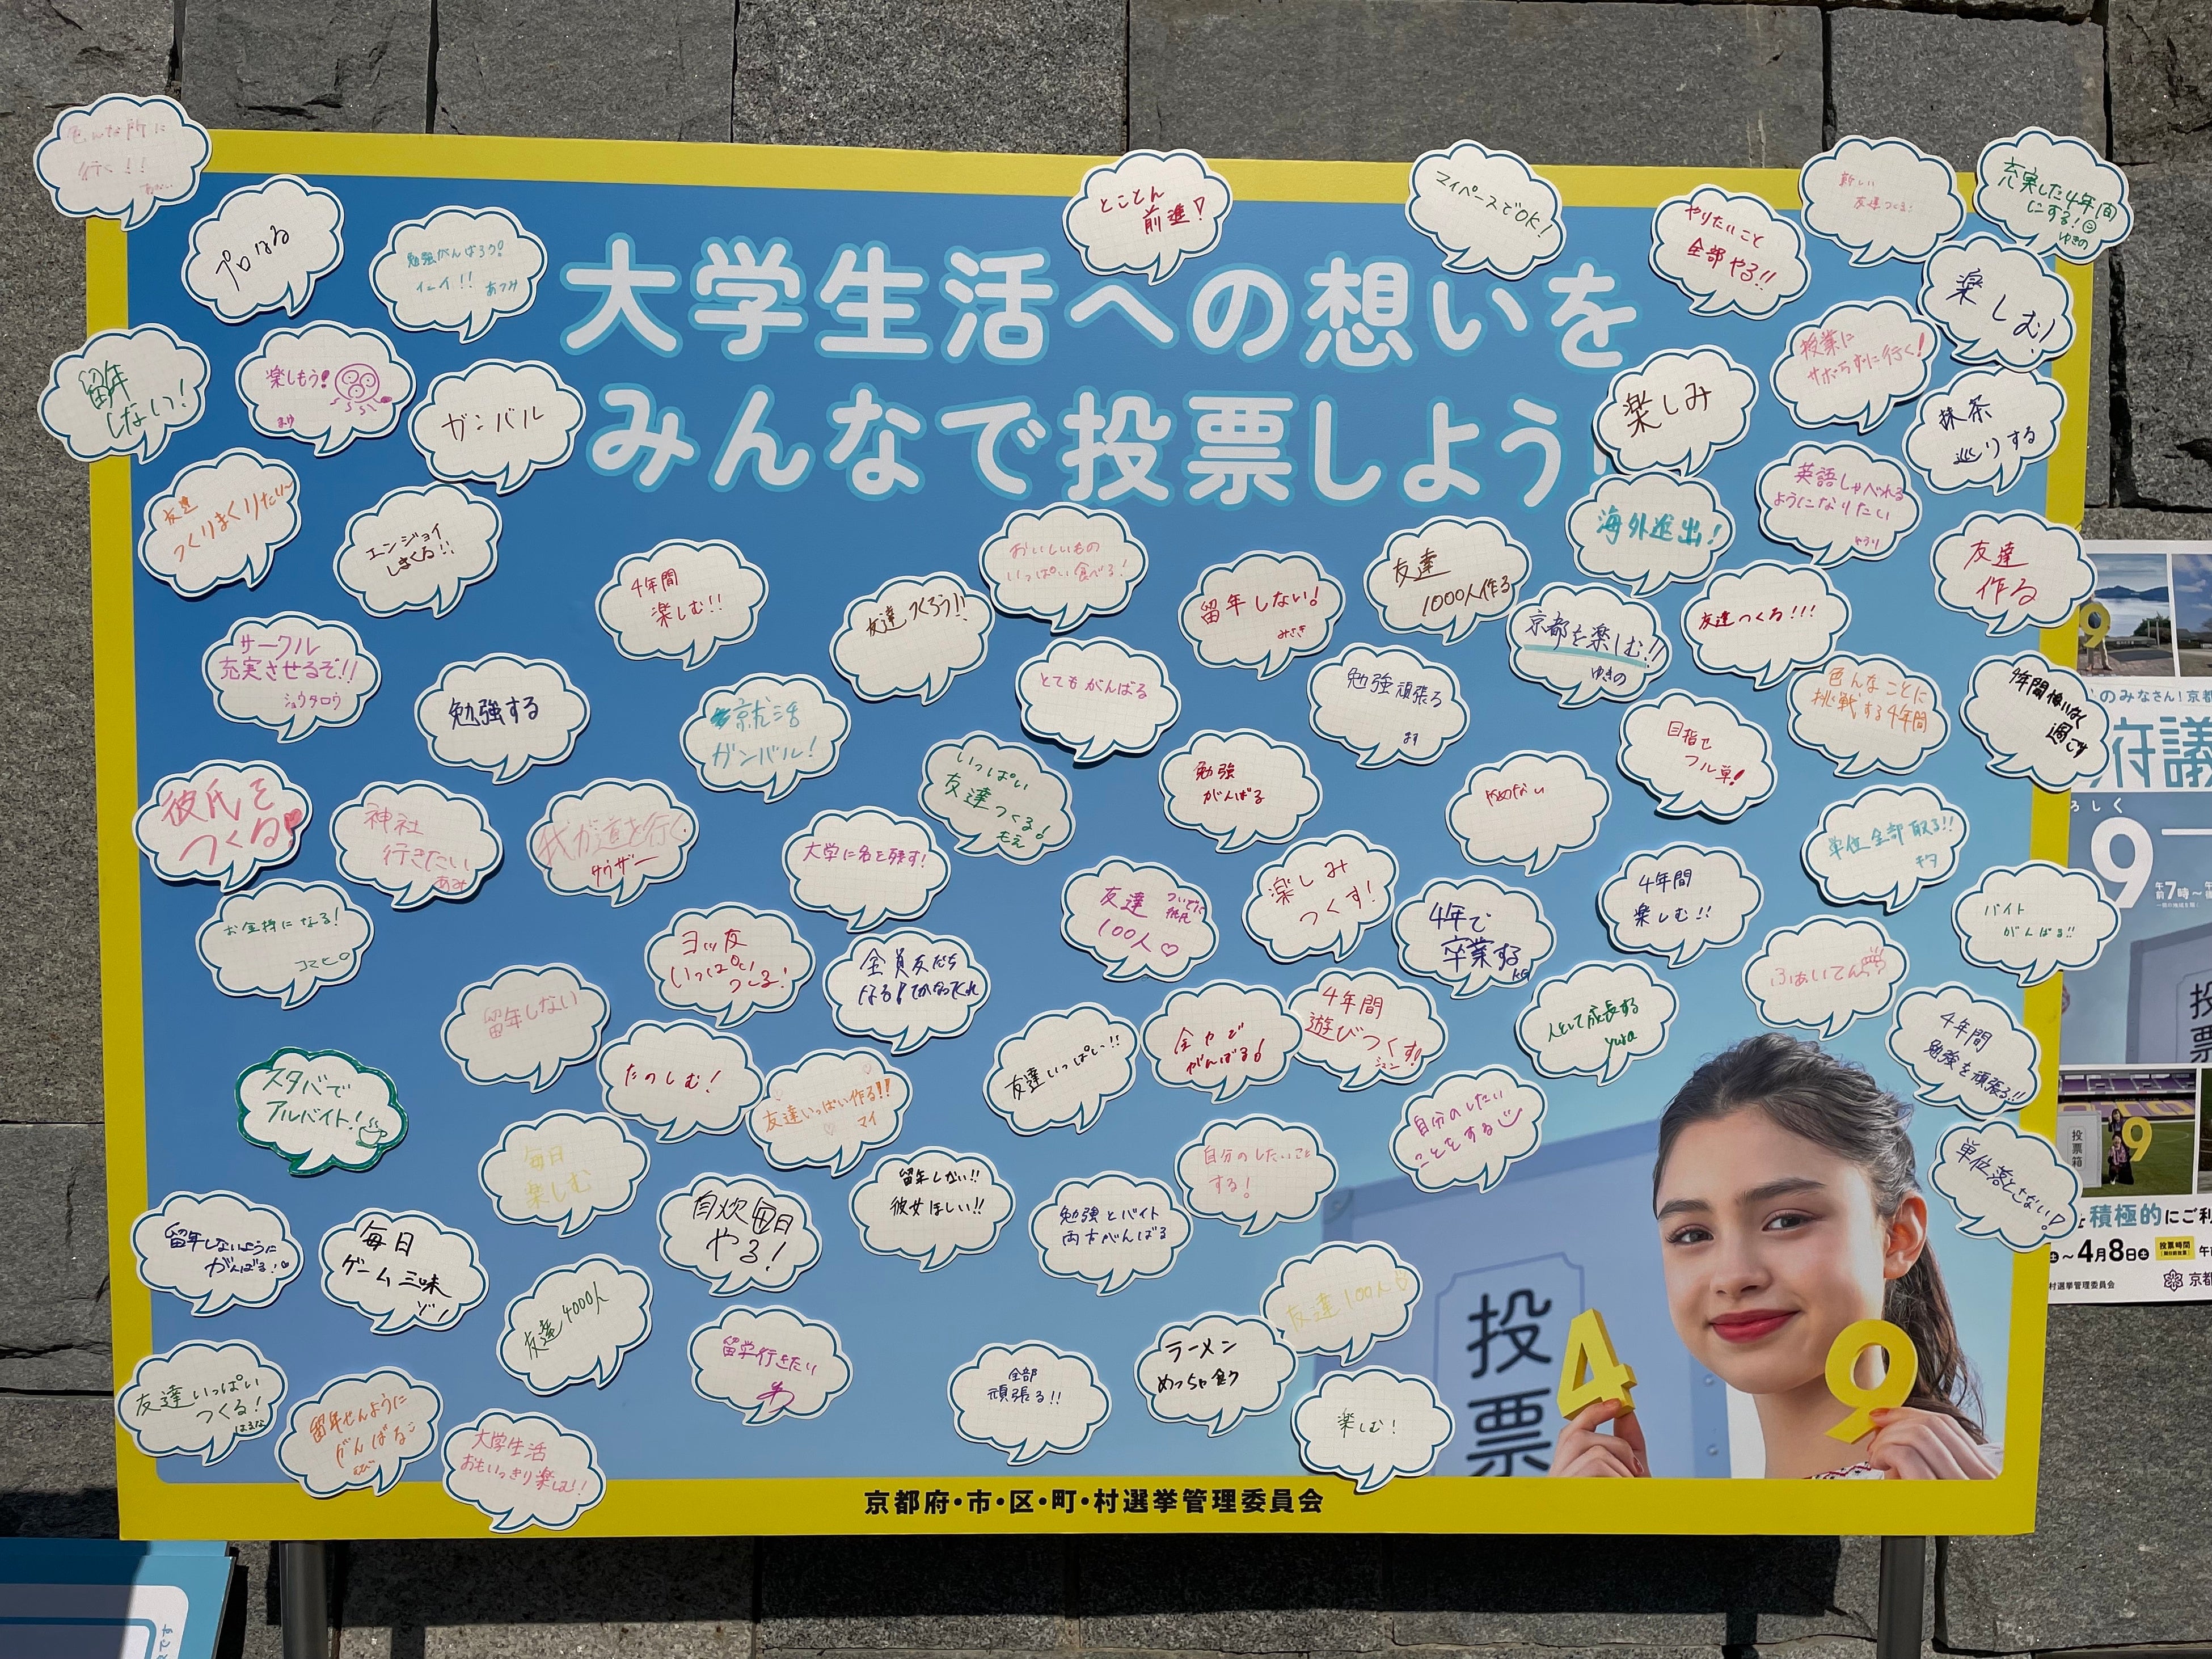 大学生活への想いを
みんなで投票しよう!
色んな所に
行く!!
プロなる
勉強がんばろう!
あつみ
とことん
前進!
マイペースでOK!
やりたいこと
全部やる!!
新しい
友達つくる!
充実した4年間
にする!
ゆきの
楽しむ!
留年
しない!
楽しもう!
まゆ
ガンバル
楽しみ
授業に
サボらずに行く!
抹茶
巡りする
友達
つくりまくりたい~
エンジョイ
しまくる!!
4年間
楽しむ!!
友達つくろう!!
おいしいもの
いっぱい食べる!
留年しない!
みさき
友達
1000人作る
海外進出!
英語しゃべれる
ようになりたい
友達
作る
サークル
充実させるぞ!!
ショウタロウ
勉強する
就活
ガンバル!
とてもがんばる
勉強頑張る
京都を楽しむ!!
ゆきの
友達つくる!!!
色んなことに
挑戦する4年間
4年間悔いなく
過ごす
彼氏を
つくる
神社
行きたい
あみ
我が道を行く
サウザー
大学に名を残す!
いっぱい
友達つくる!
もえ
勉強
がんばる
目指せ
フル単!
単位全部取る!!
お金持になる!
ヨッ友
いっぱい
つくる!
全員友だち
友達
100人♡
楽しみ
つくす!
4年で
卒業する
4年間
楽しむ!!
バイト
がんばる!!
留年しない
たのしむ!
友達いっぱい作る!!
マイ
友達いっぱい!!
がんばる!
4年間
遊びつくす!
人として成長する
yura
ふぁいてん
4年間
勉強を頑張る!!
スタバで
アルバイト!
毎日
楽しむ
自炊毎日
やる!
留年しない!!
彼女ほしい!!
勉強とバイト
両方がんばる
自分のしたいこと
する!
自分のしたい
ことをする
単位落とさない!
留年しないように
がんばる!
毎日
ゲーム三昧
友達4000人
留学行きたい
全部
頑張る!!
ラーメン
めっちゃ食う
友達100人
楽しむ!
友達いっぱい
つくる!
はるな
留年せんように
がんばる
大学生活
おもいっきり楽しむ!!
投票
4
9
京都府・市・区・町・村選挙管理委員会
のみなさん!京都
府議
9
午前7時~
投票
投票箱
9
積極的にご利
~4月8日土
投票時間
村選挙管理委員会